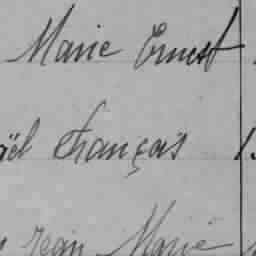 Marie Ernest
aël François
Jean Marie